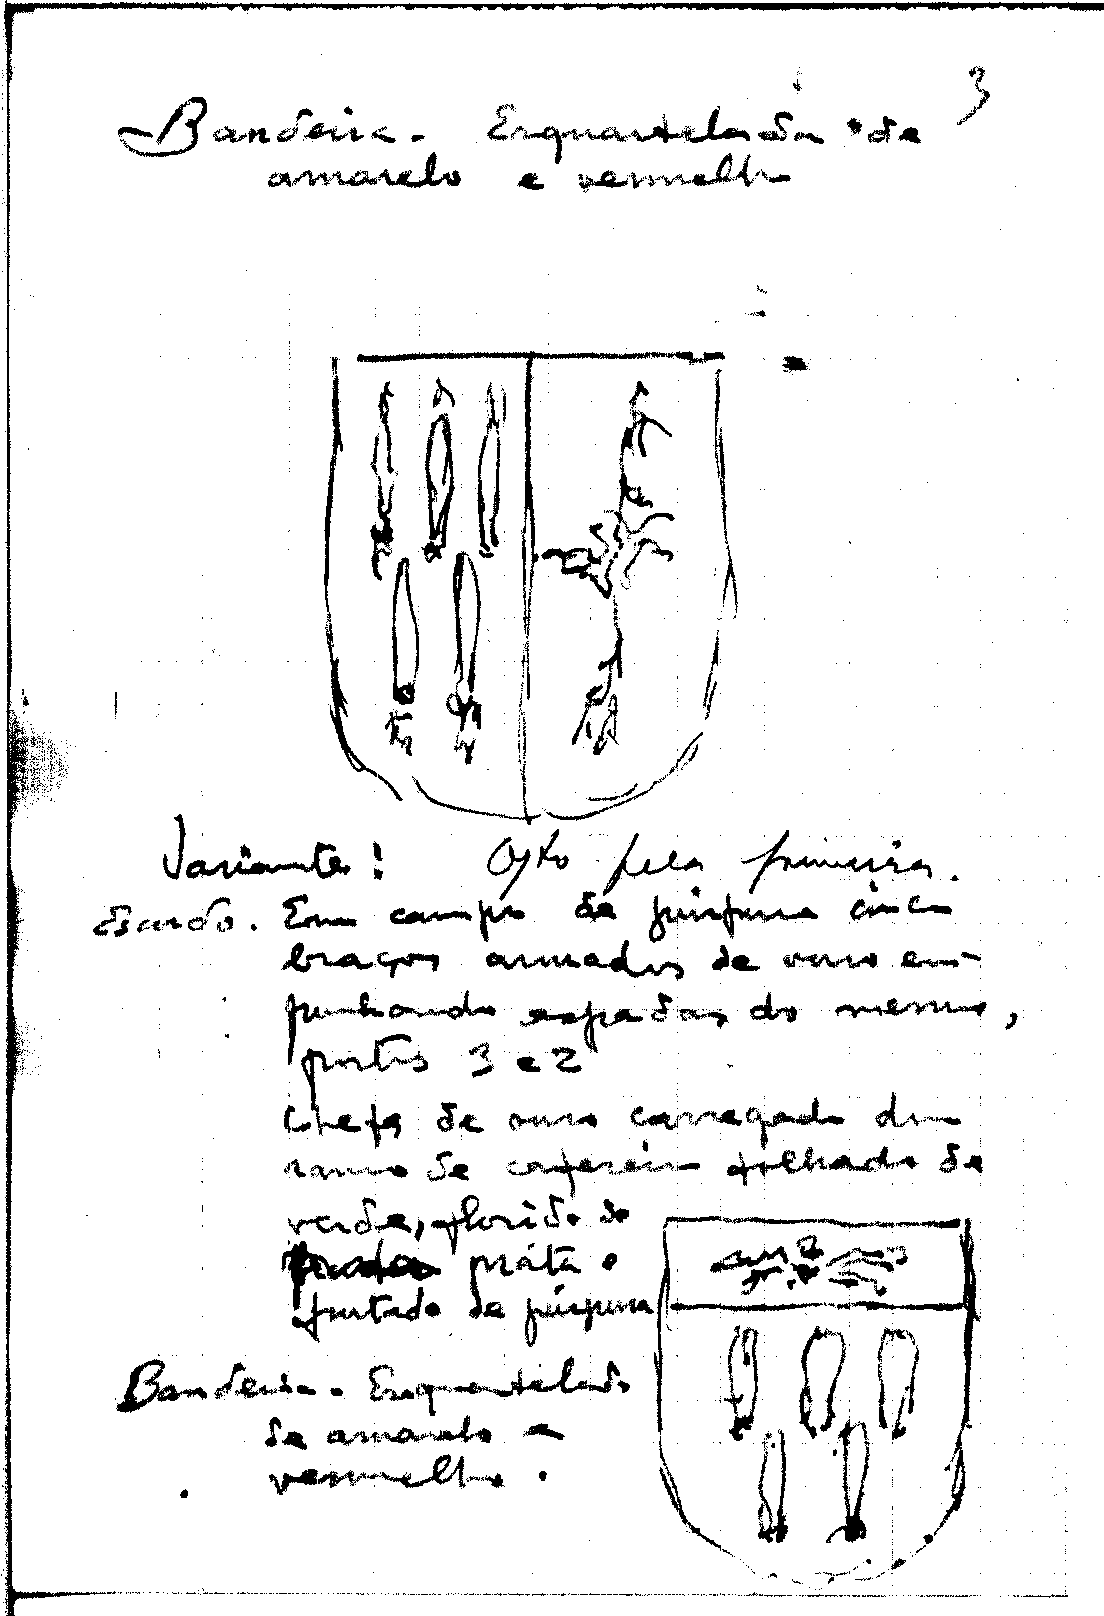 3
Bandeira - Esquartelada de
amarelo e vermelho
Variante: Opto pela primeira.
Escudo. Em campo de púrpura cinco
braços armados de ouro em-
punhando espadas do mesmo,
postos 3 e 2
Chefe de ouro carregado dum
ramo de cafeeiro folhado de
verde, florido de
prata e
frutado de púrpura
Bandeira - Esquartelada
de amarelo e
vermelho.